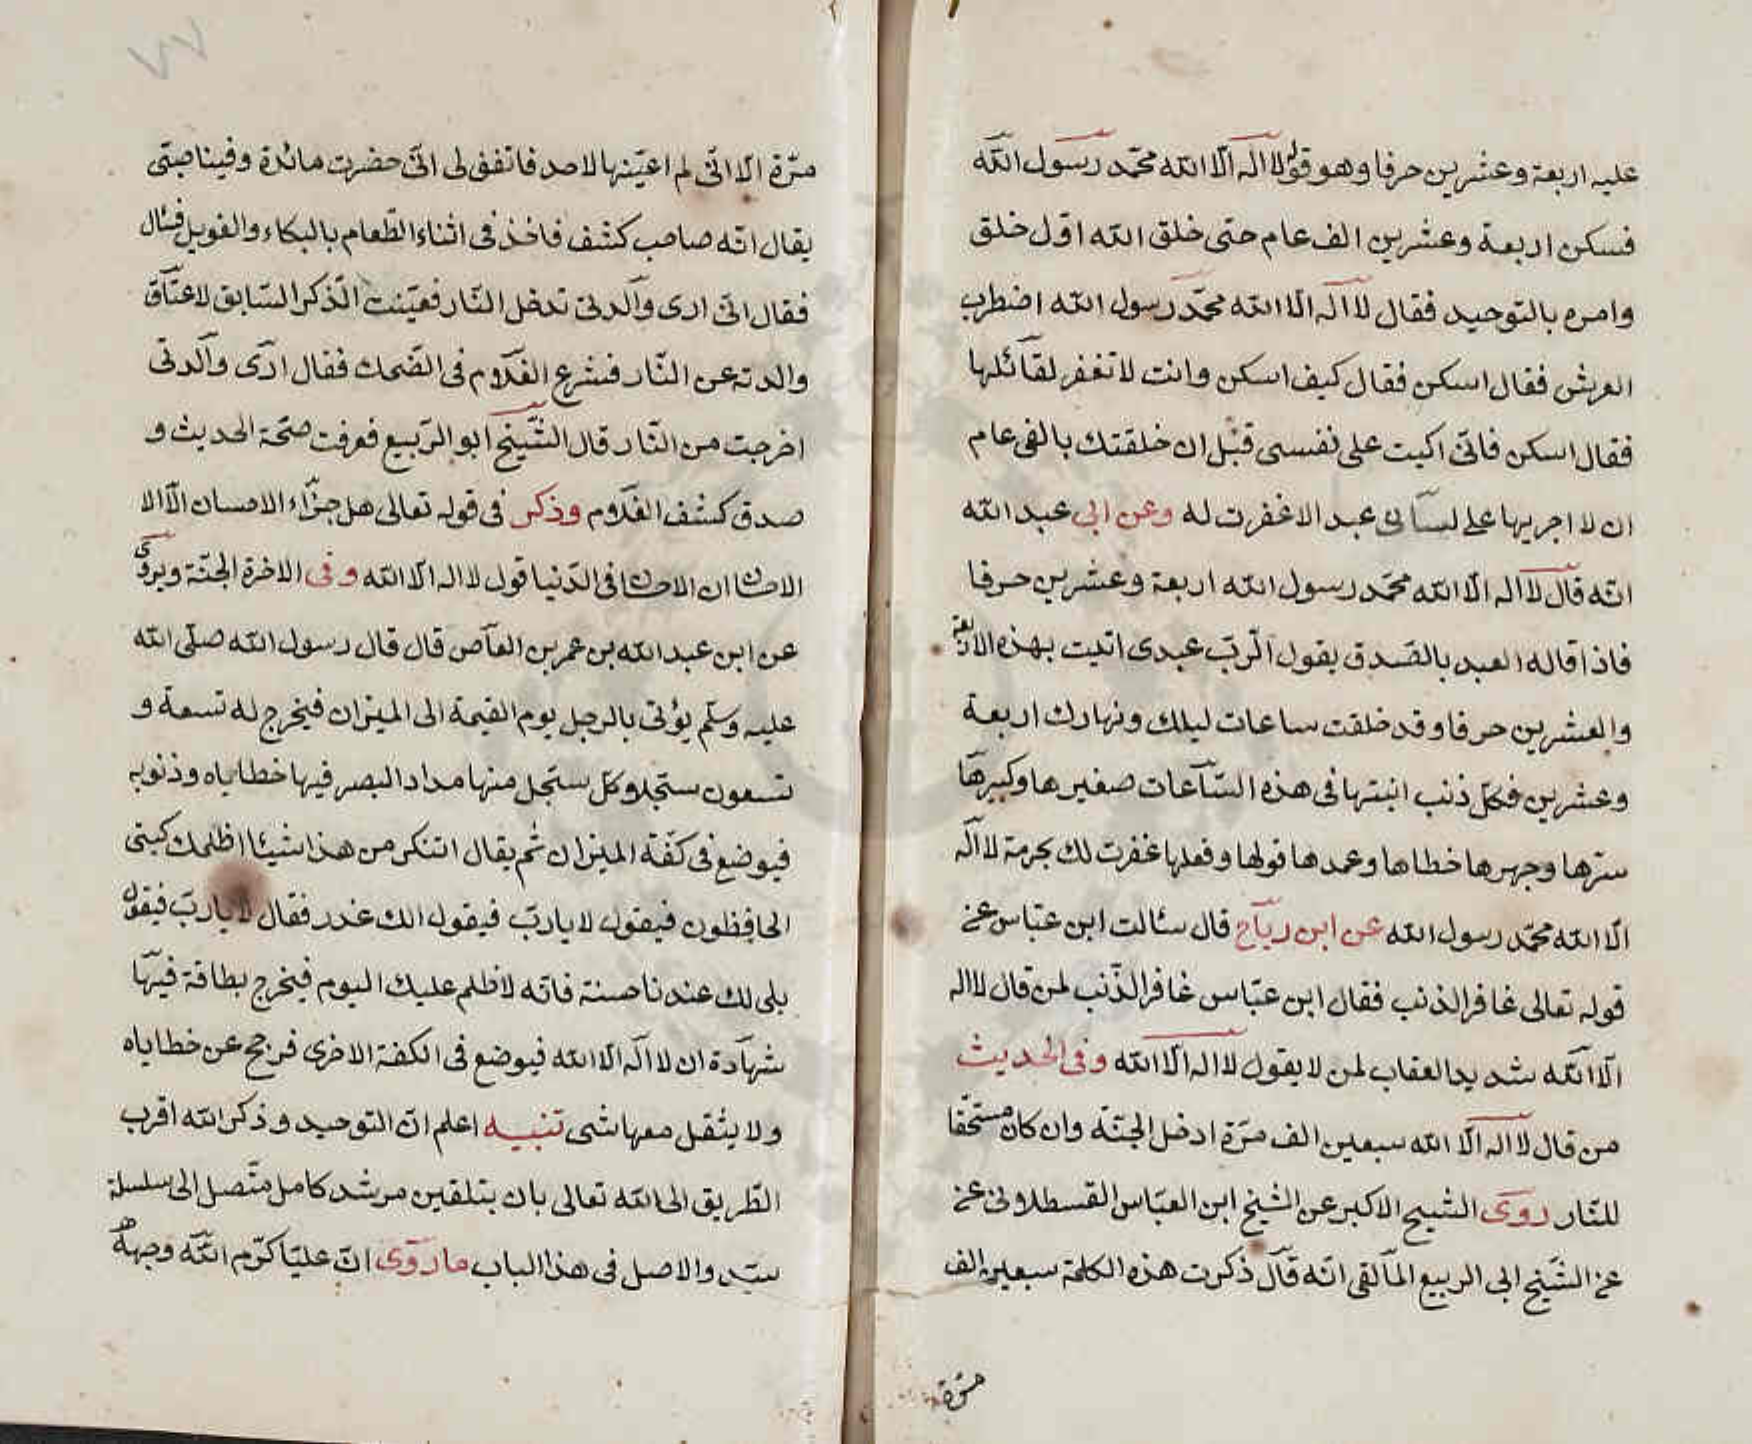 عليه اربعة وعشرين حرفا وهو قوله لا اله الا الله محمد رسول الله
فسكن اربعة وعشرين الف عام حتى خلق الله اول خلق
وامره بالتوحيد فقال لا اله الا الله محمد رسول الله اضطرب
العرش فقال اسكن فقال كيف اسكن وانت لا تغفر لقائلها
فقال اسكن فانى اكيت على نفسى قبل ان خلقتك بالفى عام
ان لا اجريها على لسان عبد الا غفرت له وعن ابى عبد الله
انه قال لا اله الا الله محمد رسول الله اربعة وعشرين حرفا
فاذا قاله العبد بالصدق يقول الرب عبدى اتيت بهذه الاربعة
والعشرين حرفا وقد خلقت ساعات ليلك ونهارك اربعة
وعشرين فكل ذنب اتيتها فى هذه الساعات صغيرها وكبيرها
سرها وجهرها خطاها وعمدها قولها وفعلها غفرت لك بحرمة لا اله
الا الله محمد رسول الله عن ابن رباح قال سئالت ابن عباس عن
قوله تعالى غافر الذنب فقال ابن عباس غافر الذنب لمن قال لا اله
الا الله شديد العقاب لمن لا يقول لا اله الا الله وفى الحديث
من قال لا اله الا الله سبعين الف مرة ادخل الجنة وان كان مستحقا
للنار روى الشيخ الاكبر عن الشيخ ابن العباس القسطلانى عن
عن الشيخ ابى الربيع المالقى انه قال ذكرت هذه الكلمة سبعين الف
مرة
مرة الا انى لم اعينها لاحد فاتفق لى انى حضرت مائدة وفينا صبى
يقال انه صاحب كشف فاخذ فى اثناء الطعام بالبكاء والعويل فسئال
فقال انى ارى والدتى تدخل النار فعينت الذكر السابق لاعتاق
والدته عن النار فشرع الغلام فى الضحك فقال ارى والدتى
اخرجت من النار قال الشيخ ابو الربيع فعرفت صحة الحديث و
صدق كشف الغلام وذكر فى قوله تعالى هل جزاء الاحسان الا الا
الاحسان ان الاحسان فى الدنيا قول لا اله الا الله وفى الاخرة الجنة ويروى
عن ابن عبد الله بن عمر بن العاص قال قال رسول الله صلى الله
عليه وسلم يؤتى بالرجل يوم القيمة الى الميزان فيخرج له تسعة و
تسعون سجلا وكل سجل منها مداد البصر فيها خطاياه وذنوبه
فيوضع فى كفة الميزان ثم يقال اتنكر من هذا شيئا اظلمك كبتى
الحافظون فيقول لا يا رب فيقول الك عذر فقال لا يا رب فيقول
بلى لك عندنا حسنة فانه لا ظلم عليك اليوم فيخرج بطاقة فيها
شهادة ان لا اله الا الله فيوضع فى الكفة الاخرى فرجح عن خطاياه
ولا يثقل معها شى تنبيه اعلم ان التوحيد وذكر الله اقرب
الطريق الى الله تعالى بان يتلقين مرشد كامل متصل الى سلسلة
والاصل فى هذا الباب ما روى ان عليا كرم الله وجهه